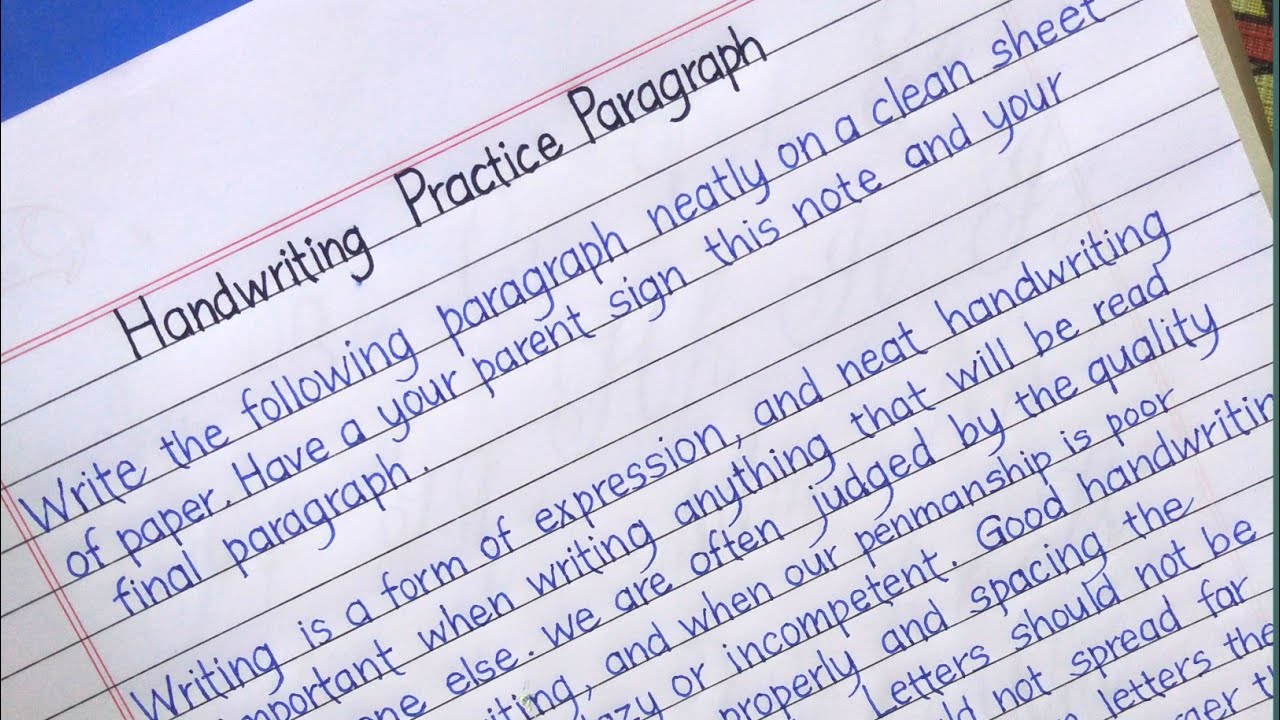 Handwriting Practice Paragraph
Write the following paragraph neatly on a clean sheet
of paper. Have a your parent sign this note and your
final paragraph.
Writing is a form of expression, and neat handwriting
important when writing anything that will be read
one else. we are often judged by the quality
iting, and when our penmanship is poor
lazy or incompetent. Good handwritin
properly and spacing the
Letters should not be
not spread far
letters